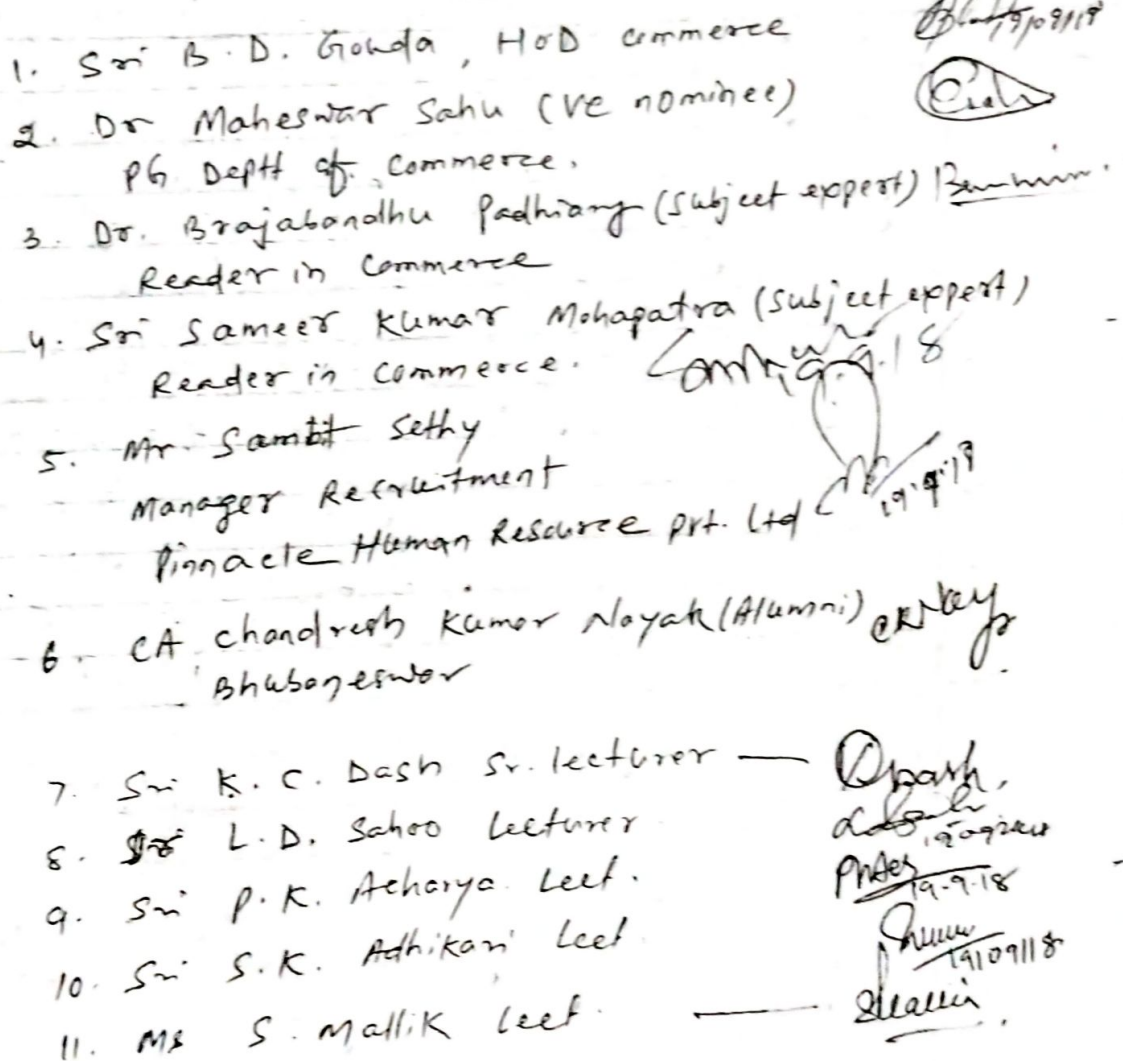 1. Sri B.D. Gouda, HOD commerce 19/09/18
2. Dr Maheswar Sahu (VC nominee)
PG Deptt of Commerce.
3. Dr. Brajabandhu Padhiary (Subject expert)
Reader in Commerce
4. Sri Sameer Kumar Mohapatra (Subject expert)
Reader in Commerce. 19.9.18
5. Mr. Sambit Sethy
Manager Recruitment
Pinnacle Human Resource Prt. Ltd 19.9.18
6. CA Chandresh Kumar Nayak (Alumni)
Bhubaneswar
7. Sri K.C. Dash Sr. lecturer —
8. L.D. Sahoo Lecturer
9. Sri P.K. Acharya Lect. 19-9-18
10. Sri S.K. Adhikari Lect 19/09/18
11. Ms S. Mallik Lect. —